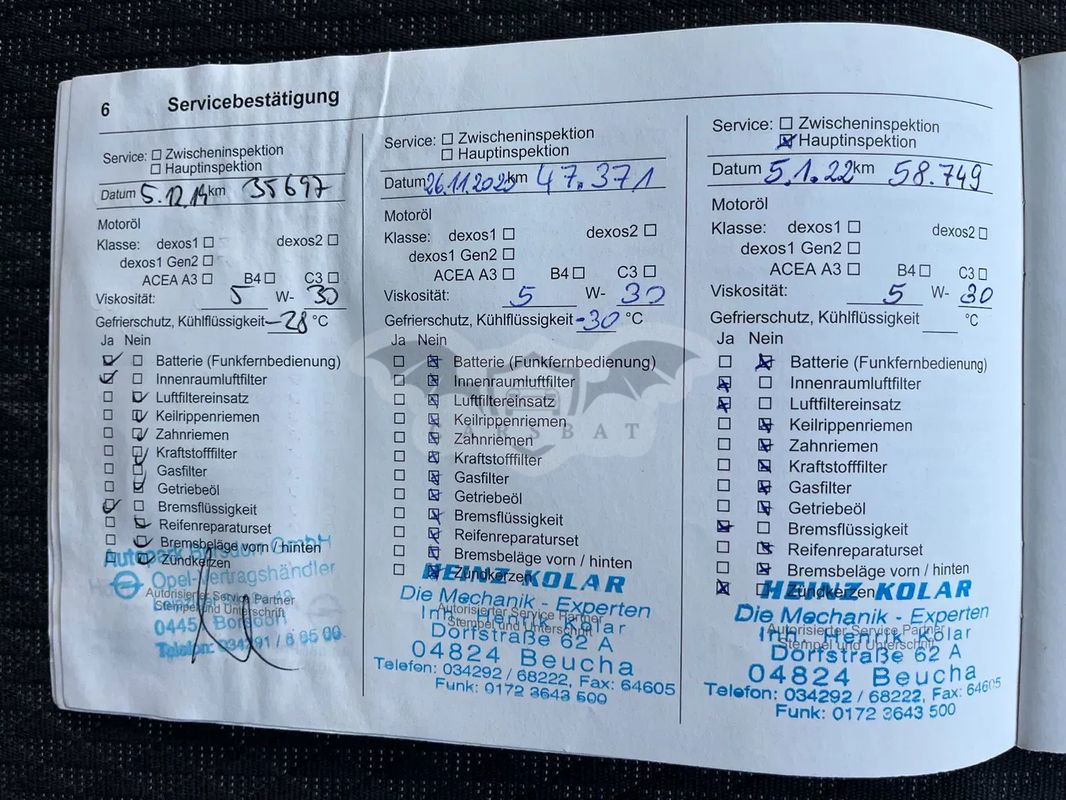 6 Servicebestätigung
Service: ☐ Zwischeninspektion
☐ Hauptinspektion
Datum 5.12.19 km 35697
Motoröl
Klasse: dexos1 ☐ dexos2 ☐
dexos1 Gen2 ☐
ACEA A3 ☐ B4 ☐ C3 ☐
Viskosität: 5 W- 30
Gefrierschutz, Kühlflüssigkeit -28 °C
Ja Nein
Batterie (Funkfernbedienung)
Innenraumluftfilter
Luftfiltereinsatz
Keilrippenriemen
Zahnriemen
Kraftstofffilter
Gasfilter
Getriebeöl
Bremsflüssigkeit
Reifenreparaturset
Bremsbeläge vorn / hinten
Zündkerzen
Autopark Borsdorf GmbH
Opel-Vertragshändler
Autorisierter Service Partner
Stempel und Unterschrift
Borsdorf
Telefon:
Service: ☐ Zwischeninspektion
☐ Hauptinspektion
Datum 26.11.2020 km 47.371
Motoröl
Klasse: dexos1 ☐ dexos2 ☐
dexos1 Gen2 ☐
ACEA A3 ☐ B4 ☐ C3 ☐
Viskosität: 5 W- 30
Gefrierschutz, Kühlflüssigkeit -30 °C
Ja Nein
Batterie (Funkfernbedienung)
Innenraumluftfilter
Luftfiltereinsatz
Keilrippenriemen
Zahnriemen
Kraftstofffilter
Gasfilter
Getriebeöl
Bremsflüssigkeit
Reifenreparaturset
Bremsbeläge vorn / hinten
Zündkerzen
HEINZ KOLAR
Die Mechanik - Experten
Autorisierter Service Partner
Inh. Henrik Kolar
Stempel und Unterschrift
Dorfstraße 62 A
04824 Beucha
Telefon: 034292 / 68222, Fax: 64605
Funk: 0172 3643 500
Service: ☐ Zwischeninspektion
☒ Hauptinspektion
Datum 5.1.22 km 58.749
Motoröl
Klasse: dexos1 ☐ dexos2 ☐
dexos1 Gen2 ☐
ACEA A3 ☐ B4 ☐ C3 ☐
Viskosität: 5 W- 30
Gefrierschutz, Kühlflüssigkeit °C
Ja Nein
Batterie (Funkfernbedienung)
Innenraumluftfilter
Luftfiltereinsatz
Keilrippenriemen
Zahnriemen
Kraftstofffilter
Gasfilter
Getriebeöl
Bremsflüssigkeit
Reifenreparaturset
Bremsbeläge vorn / hinten
Zündkerzen
HEINZ KOLAR
Die Mechanik - Experten
Autorisierter Service Partner
Inh. Henrik Kolar
Stempel und Unterschrift
Dorfstraße 62 A
04824 Beucha
Telefon: 034292 / 68222, Fax: 64605
Funk: 0172 3643 500
CARSBAT